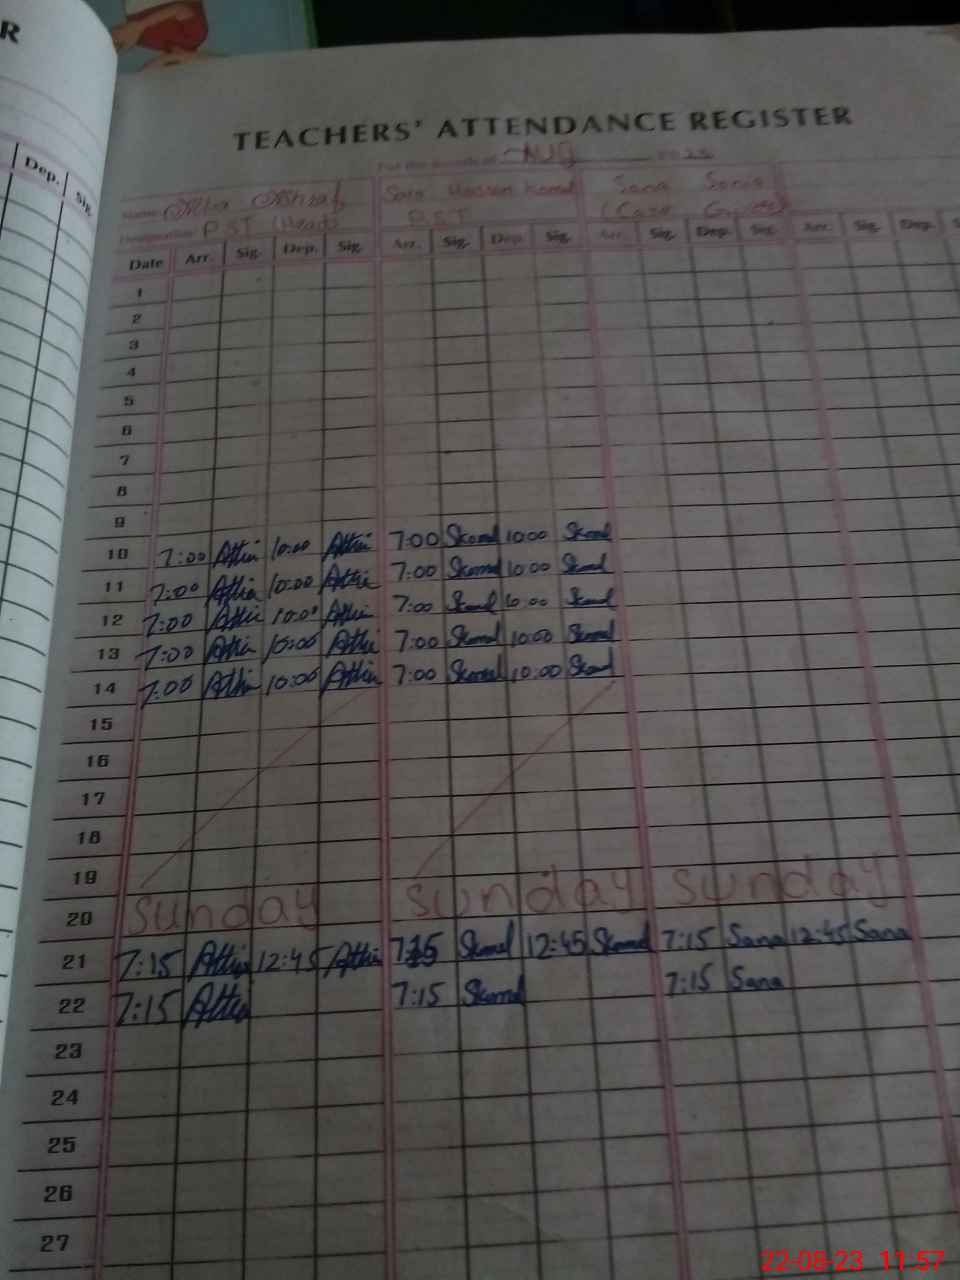 R
Dep. Sig.
TEACHERS' ATTENDANCE REGISTER
For the month of Aug 2023
Name Sana Sonia
Designation P.S.T (Head) P.S.T
Date Arr. Sig. Dep. Sig. Arr. Sig. Dep. Sig. Arr. Sig. Dep. Sig. Arr. Sig. Dep. S
1
2
3
4
5
6
7
8
9
10 7:00 Attia 10:00 Attia 7:00 Skomal 10:00 Skomal
11 7:00 Attia 10:00 Attia 7:00 Skomal 10:00 Skomal
12 7:00 Attia 10:00 Attia 7:00 Skomal 10:00 Skomal
13 7:00 Attia 10:00 Attia 7:00 Skomal 10:00 Skomal
14 7:00 Attia 10:00 Attia 7:00 Skomal 10:00 Skomal
15
16
17
18
19
20 Sunday Sunday Sunday
21 7:15 Attia 12:45 Attia 7:15 Skomal 12:45 Skomal 7:15 Sana 12:45 Sana
22 7:15 Attia 7:15 Skomal 7:15 Sana
23
24
25
26
27
22-08-23 11:57